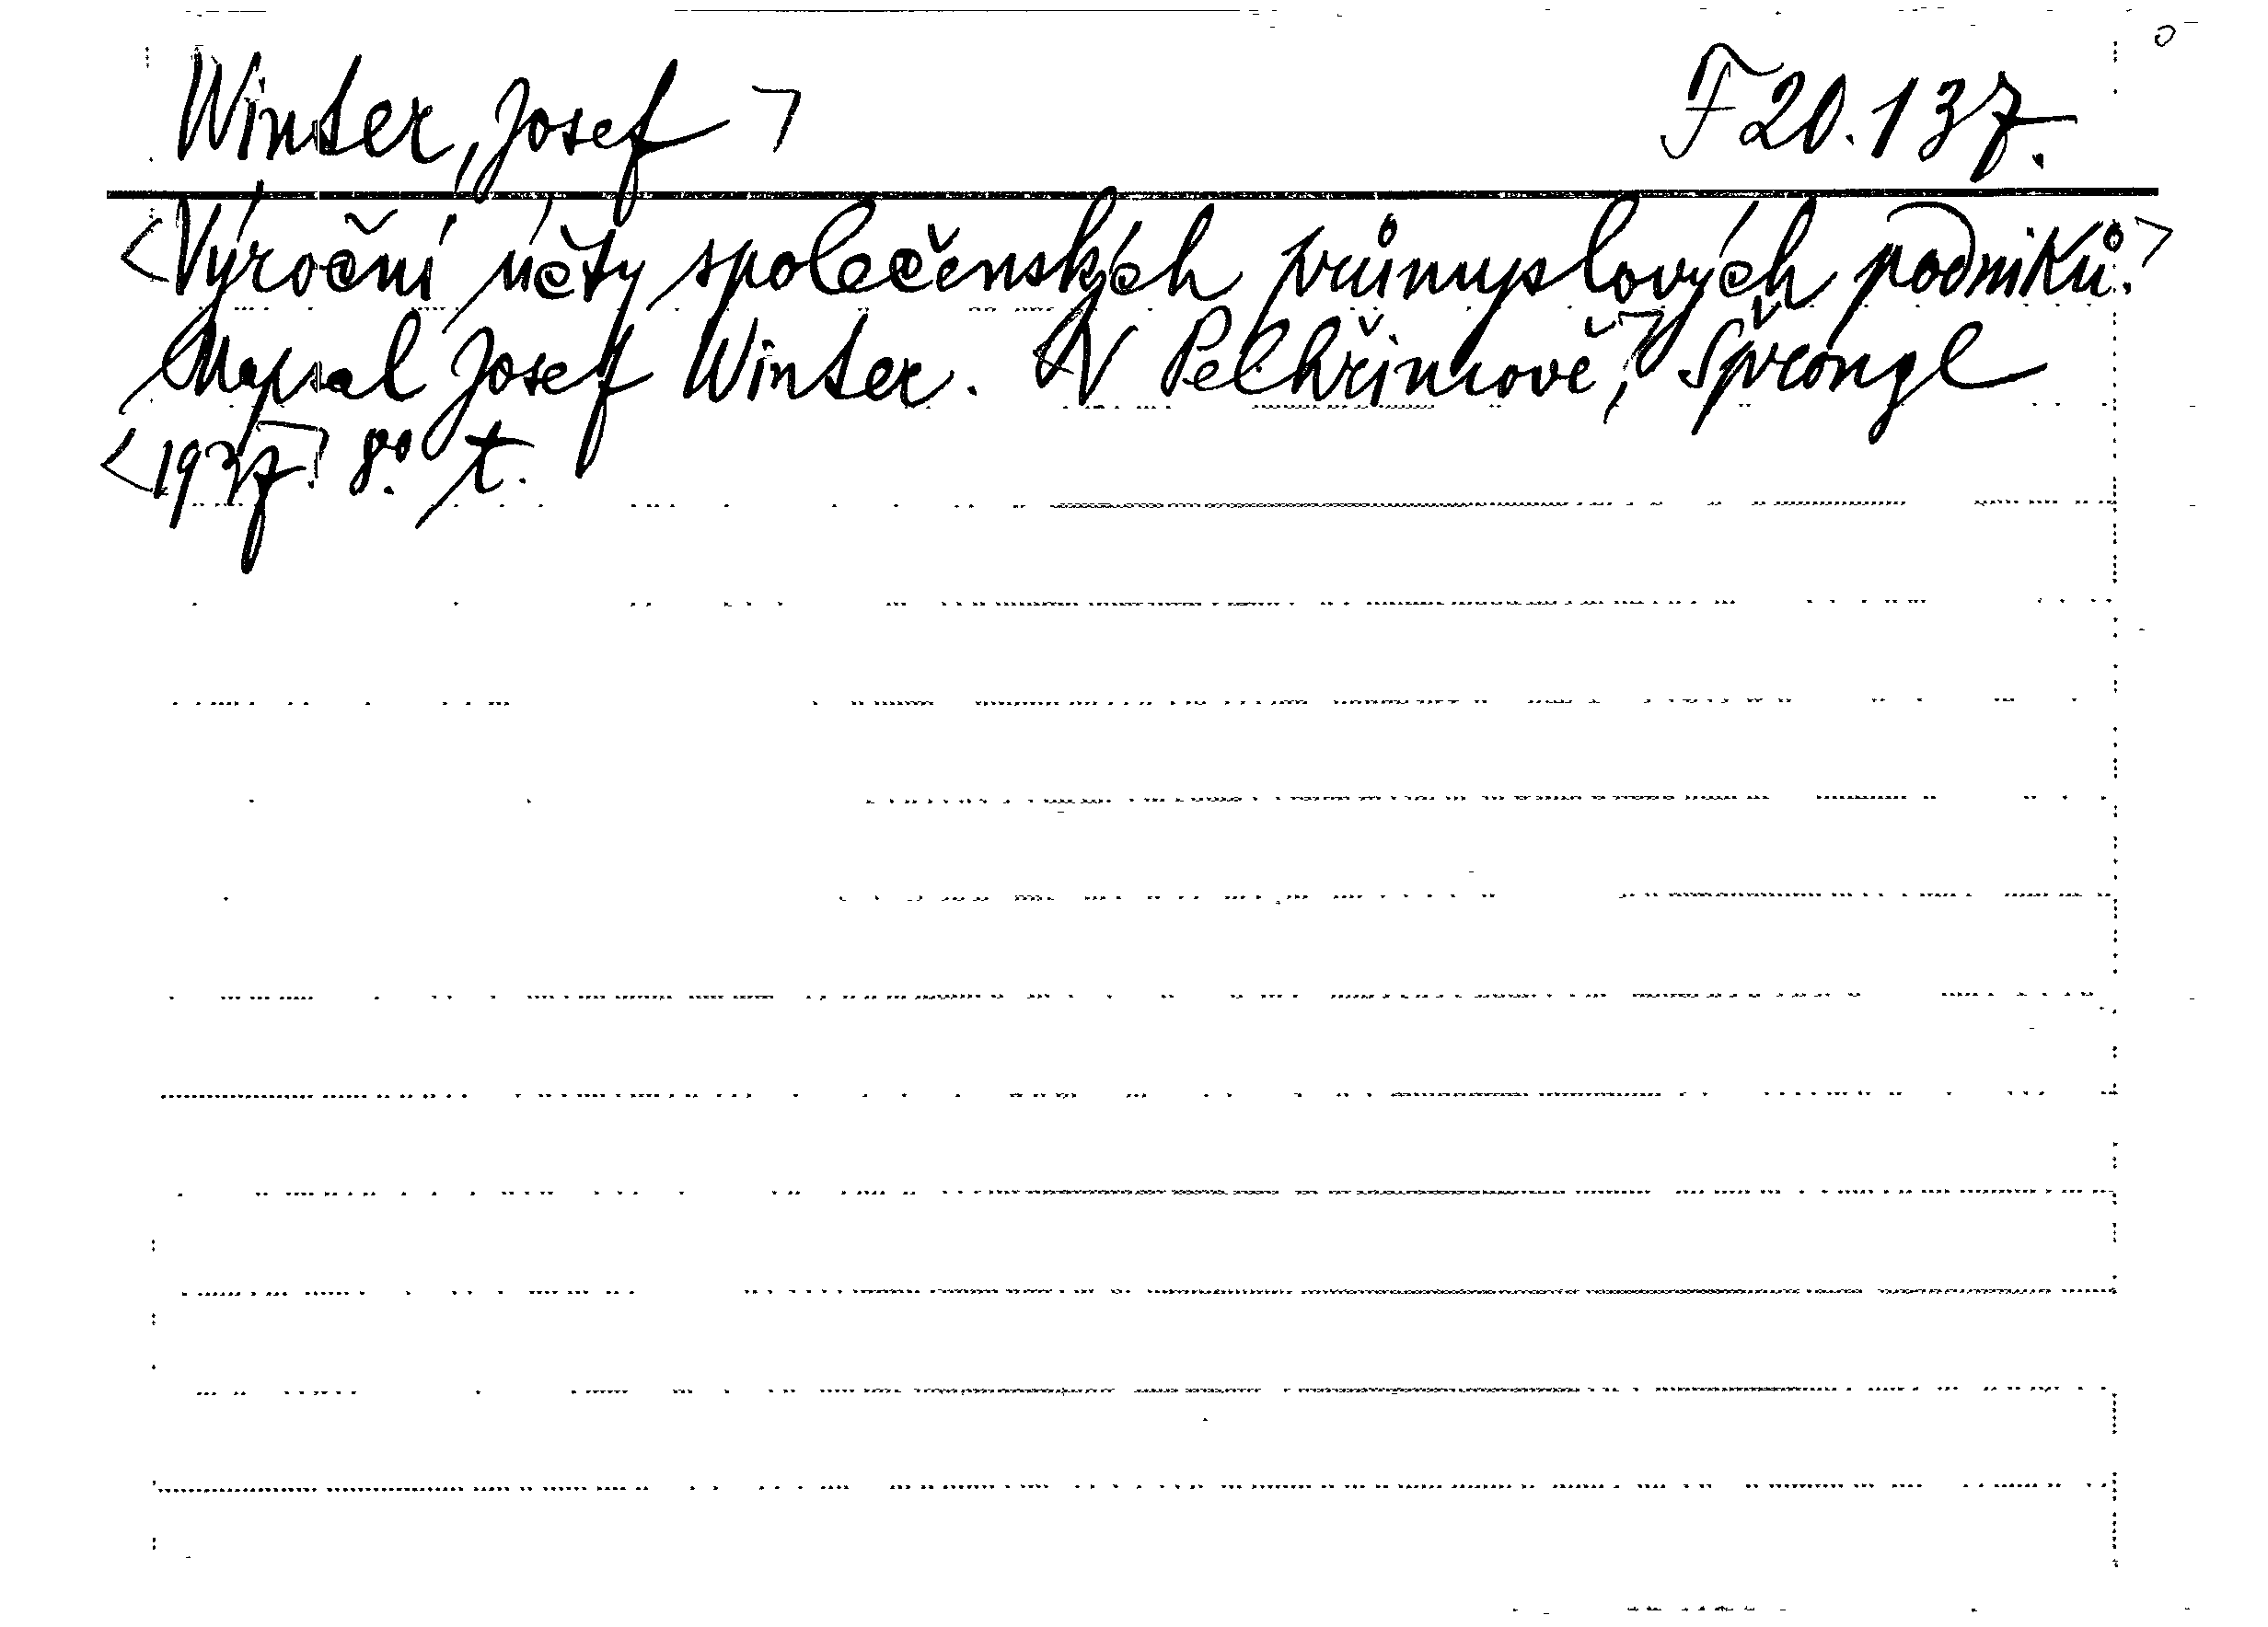 Winter, Josef ┐ F 20.137.
<Výroční účty společenských průmyslových podniků.┐
Napsal Josef Winter. V Pelhřimově,┐ Šprongl
<1937.┐ 8° t.